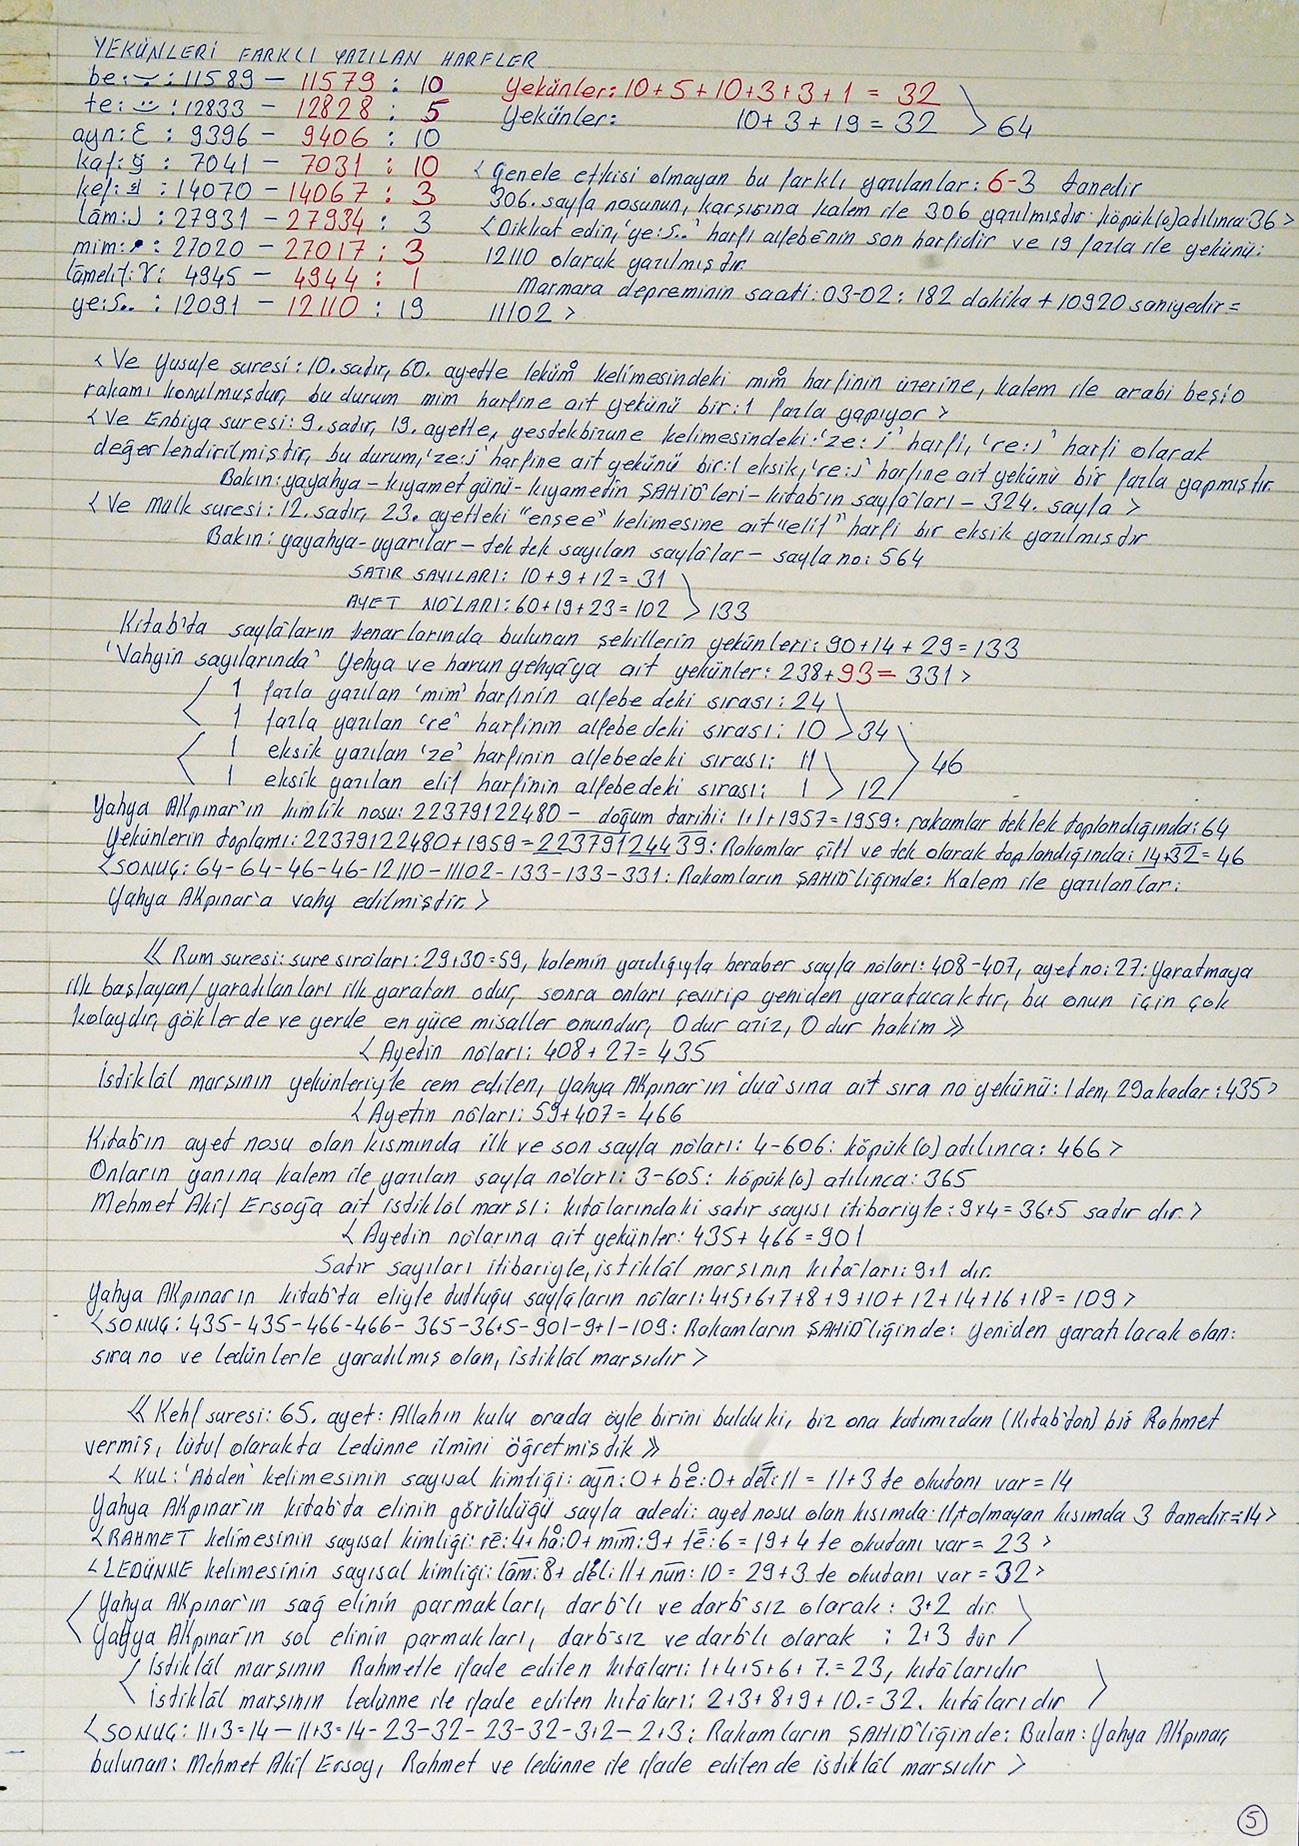 YEKÜNLERİ FARKLI YAZILAN HARFLER
be: ب : 11589 – 11579 : 10 Yekünler: 10+5+10+3+3+1 = 32
te: ت : 12833 – 12828 : 5 Yekünler: 10+3+19=32 > 64
ayn: ع : 9396 – 9406 : 10
kaf: ق : 7041 – 7031 : 10 < Genele etkisi olmayan bu farklı yazılanlar: 6-3 tanedir
kef: ك : 14070 – 14067 : 3 306. sayfa nosunun, karşısına kalem ile 306 yazılmışdır köpük(o) atılınca: 36 >
Lâm: ل : 27931 – 27934 : 3 < Dikkat edin, 'ye: ى..' harfi alfebênin son harfidir ve 19 fazla ile yekünü:
mim: م : 27020 – 27017 : 3 12110 olarak yazılmışdır.
lâmelif: لا : 4945 – 4944 : 1 Marmara depreminin saati: 03-02: 182 dakika + 10920 saniyedir =
ye: ى.. : 12091 – 12110 : 19 11102 >
< Ve Yusufe suresi: 10. satır, 60. ayette leküm kelimesindeki mim harfinin üzerine, kalem ile arabi beş: o
rakamı konulmuşdur, bu durum mim harfine ait yekünü bir: 1 fazla yapıyor >
< Ve Enbiya suresi: 9. satır, 19. ayette, yestekbirune kelimesindeki: 'ze: ز' harfi, 're: ر' harfi olarak
değerlendirilmiştir, bu durum, 'ze: ز' harfine ait yekünü bir: 1 eksik, 're: ر' harfine ait yekünü bir fazla yapmıştır.
Bakın: yayahya – kıyamet günü – kıyametin ŞAHİD'leri – kitab'ın sayfâ'ları – 324. sayfa >
< Ve Mülk suresi: 12. satır, 23. ayetteki "enşee" kelimesine ait "elif" harfi bir eksik yazılmışdır
Bakın: yayahya – uyarılar – tek tek sayılan sayfâlar – sayfa no: 564
SATIR SAYILARI: 10+9+12=31
AYET NÔLARI: 60+19+23=102 > 133
Kitab'ta sayfâların kenarlarında bulunan şekillerin yekünleri: 90+14+29=133
'Vahyin sayılarında' Yehya ve harun yehya'ya ait yekünler: 238+93= 331 >
< 1 fazla yazılan 'mim' harfinin alfebe deki sırası: 24
1 fazla yazılan 're' harfinin alfebe deki sırası: 10 > 34
< 1 eksik yazılan 'ze' harfinin alfebedeki sırası: 11 > 46
1 eksik yazılan elif harfinin alfebedeki sırası: 1 > 12
Yahya AKpınar'ın kimlik nosu: 22379122480 – doğum tarihi: 1+1+1957=1959: rakamlar tek tek toplandığında: 64
Yekünlerin toplamı: 22379122480+1959=22379124439: Rakamlar çift ve tek olarak toplandığında: 14+32=46
< SONUÇ: 64-64-46-46-12110-11102-133-133-331: Rakamların ŞAHİD'liğinde: Kalem ile yazılanlar:
Yahya AKpınar'a vahy edilmiştir. >
≪ Rum suresi: sure sırâları: 29+30=59, kalemin yazdığıyla beraber sayfa nôları: 408-407, ayet no: 27: Yaratmaya
ilk başlayan/yaratılanları ilk yaratan odur, sonra onları çevirip yeniden yaratacaktır, bu onun için çok
kolaydır, gökler de ve yerde en yüce misaller onundur, O dur aziz, O dur hakim ≫
< Ayetin nôları: 408+27=435
İstiklâl marşının yekünleriyle cem edilen, Yahya AKpınar'ın 'dua'sına ait sıra no yekünü: 1 den, 29 a kadar: 435 >
< Ayetin nôları: 59+407= 466
Kitab'ın ayet nosu olan kısmında ilk ve son sayfa nôları: 4-606: köpük(o) atılınca: 466 >
Onların yanına kalem ile yazılan sayfa nôları: 3-605: köpük(o) atılınca: 365
Mehmet Akif Ersoğa ait istiklâl marşı: kıtâlarındaki satır sayısı itibariyle: 9x4=36+5 satır dır. >
< Ayetin nôlarına ait yekünler: 435+466=901
Satır sayıları itibariyle, istiklâl marşının kıtâları: 9+1 dir.
Yahya AKpınar'ın kitab'ta eliyle tuttuğu sayfâların nôları: 4+5+6+7+8+9+10+12+14+16+18=109 >
< SONUÇ: 435-435-466-466-365-36+5-901-9+1-109: Rakamların ŞAHİD'liğinde: yeniden yaratılacak olan:
sıra no ve ledünlerle yaratılmış olan, istiklâl marşıdır >
≪ Kehf suresi: 65. ayet: Allahın kulu orada öyle birini buldu ki, biz ona katımızdan (Kitab'tan) bir Rahmet
vermiş, lütuf olarakta Ledünne ilmini öğretmişdik ≫
< KUL: 'Abden' kelimesinin sayısal kimliği: ayn: 0+ be: 0+ del: 11 = 11+3 te okutanı var = 14
Yahya AKpınar'ın kitab'ta elinin görüldüğü sayfa adedi: ayet nosu olan kısımda: 11, + olmayan kısımda 3 tanedir=14 >
< RAHMET kelimesinin sayısal kimliği: re: 4+ha: 0+ mim: 9+ te: 6 = 19+4 te okutanı var = 23 >
< LEDÜNNE kelimesinin sayısal kimliği: lâm: 8+ del: 11+ nûn: 10 = 29+3 te okutanı var = 32 >
< Yahya AKpınar'ın sağ elinin parmakları, darb'lı ve darb'sız olarak: 3+2 dir.
Yahya AKpınar'ın sol elinin parmakları, darb'sız ve darb'lı olarak : 2+3 tür >
< İstiklâl marşının Rahmetle ifade edilen kıtâları: 1+4+5+6+7.=23, kıtâlarıdır
İstiklâl marşının ledünne ile ifade edilen kıtâları: 2+3+8+9+10.=32. kıtâlarıdır >
< SONUÇ: 11+3=14 – 11+3=14 – 23-32 – 23-32 – 3+2 – 2+3: Rakamların ŞAHİD'liğinde: Bulan: Yahya AKpınar,
bulunan: Mehmet Akif Ersoy, Rahmet ve ledünne ile ifade edilen de istiklâl marşıdır >
5